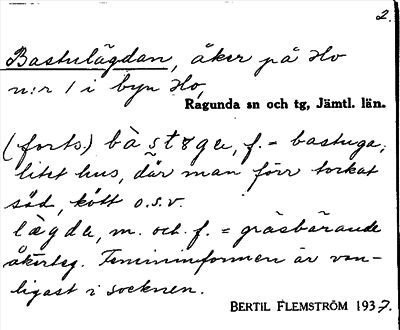 2.
Bastulägdan, åker på Ho
n:r 1 i byn Ho,
Ragunda sn och tg, Jämtl. län.
(forts.) bàstɤgɑ, f. = bastuga;
litet hus, där man förr torkat
säd, kött o.s.v.
lègdɑ, m. och f. = gräsbärande
åkerteg. Femininformen är van-
ligast i socknen.
BERTIL FLEMSTRÖM 1937.